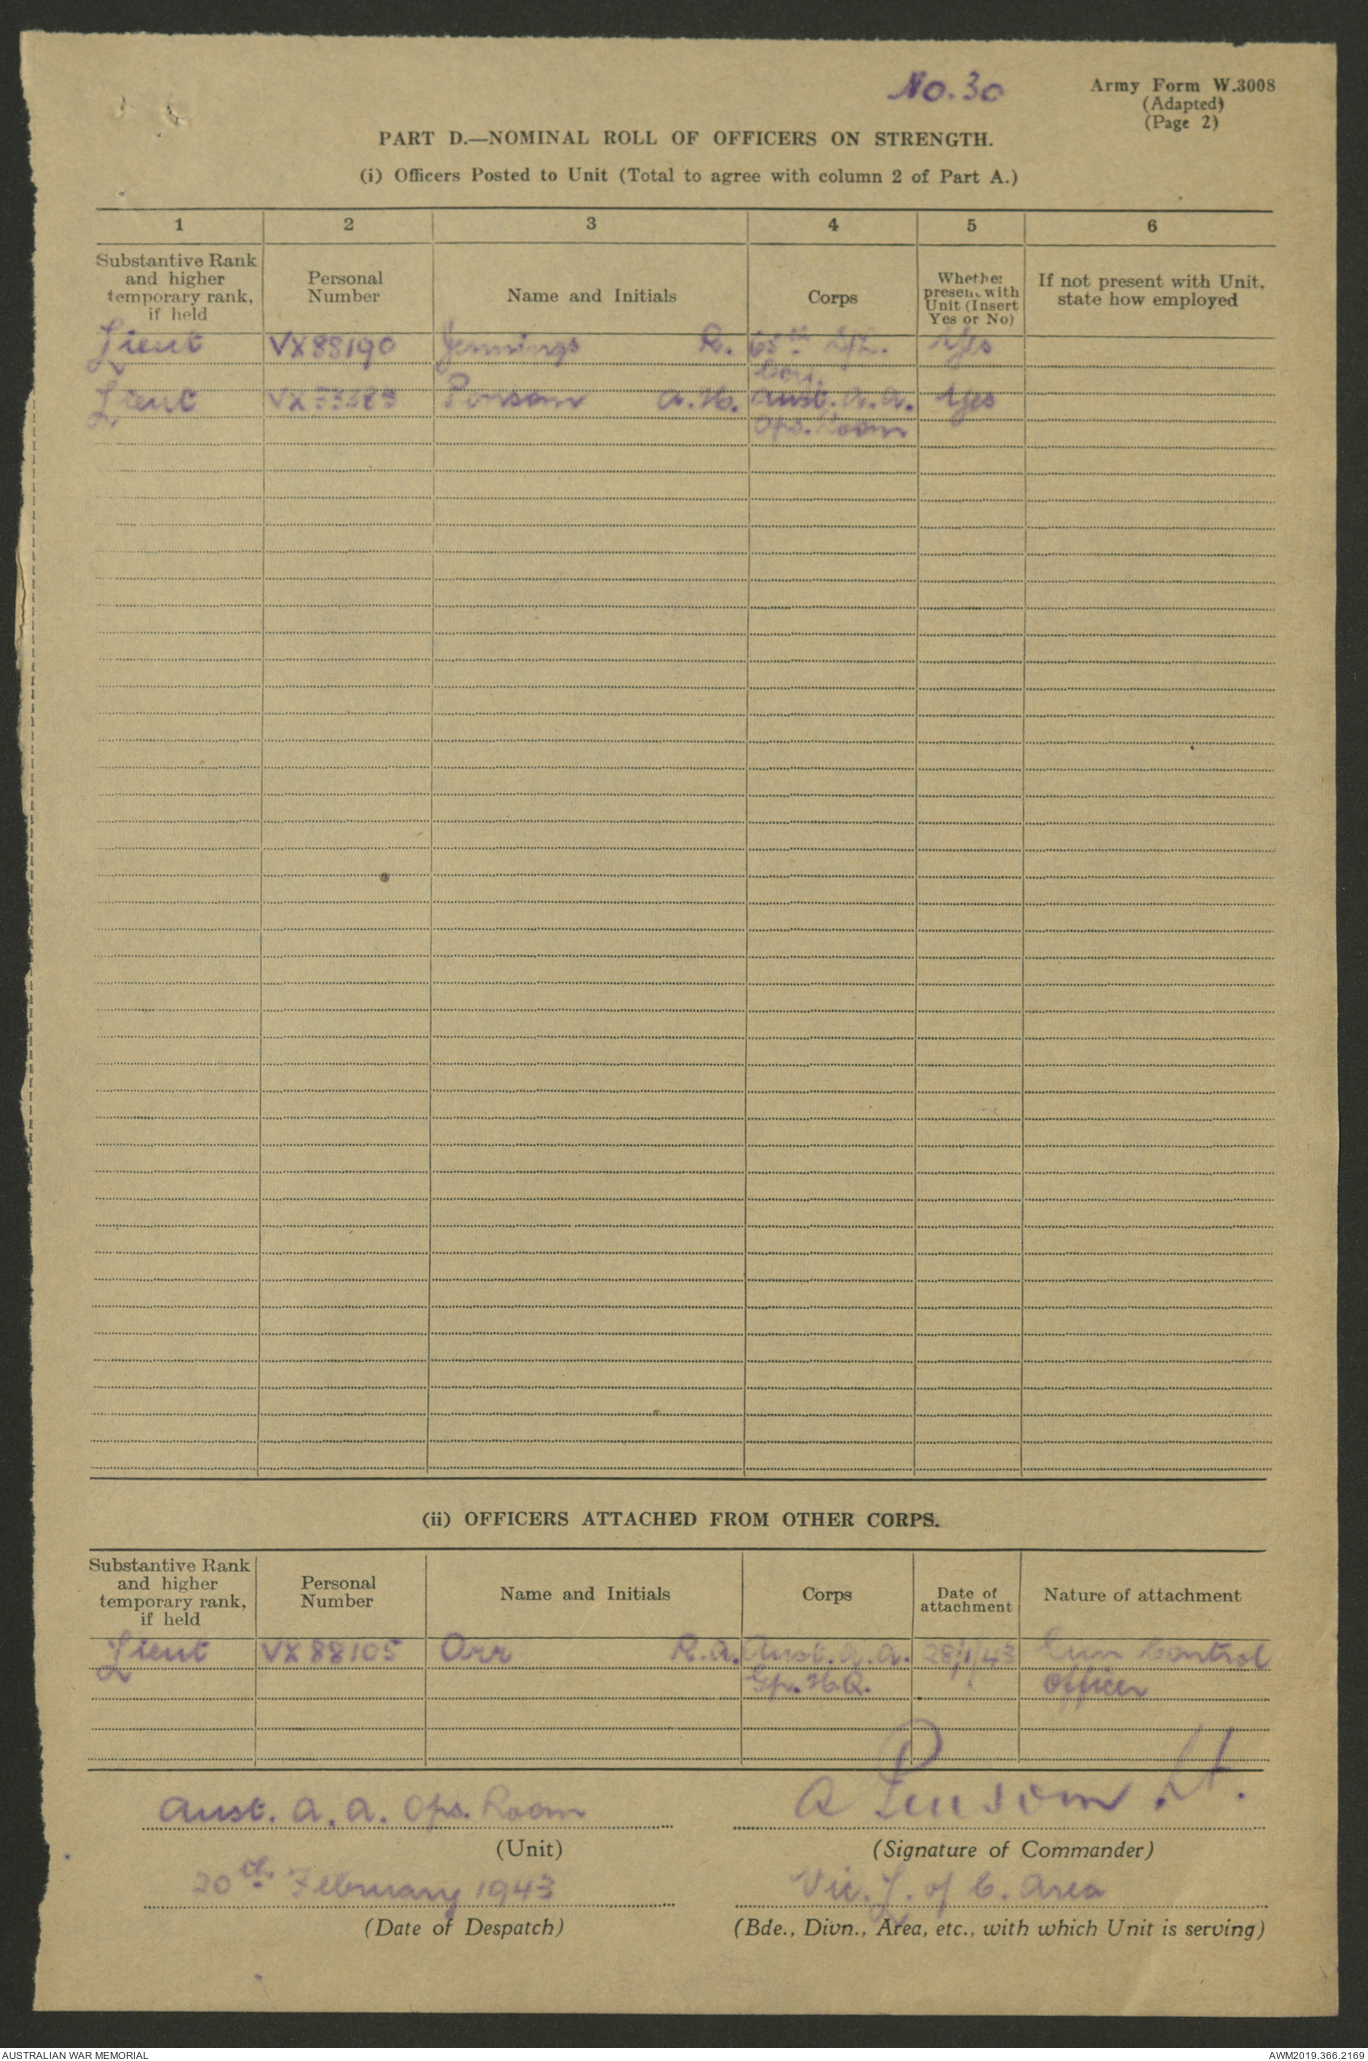 No. 30
Army Form W.3008
(Adapted)
(Page 2)
PART D.—NOMINAL ROLL OF OFFICERS ON STRENGTH.
(i) Officers Posted to Unit (Total to agree with column 2 of Part A.)
1 2 3 4 5 6
Substantive Rank and higher temporary rank, if held
Personal Number
Name and Initials
Corps
Whether present with Unit (Insert Yes or No)
If not present with Unit, state how employed
Lieut VX88190 Jennings R. 65th S/L. Yes
Lieut A.H. Aust. A.A. Yes
Ops. Room
(ii) OFFICERS ATTACHED FROM OTHER CORPS.
Substantive Rank and higher temporary rank, if held
Personal Number
Name and Initials
Corps
Date of attachment
Nature of attachment
Lieut VX88105 Orr R.A. Aust. A.A. 28/1/43 Gun Control
Gp. H.Q. Officer
Aust. A.A. Ops. Room
A Lt.
(Unit)
(Signature of Commander)
20th February 1943
Vic. L. of C. Area
(Date of Despatch)
(Bde., Divn., Area, etc., with which Unit is serving)
AUSTRALIAN WAR MEMORIAL
AWM2019.366.2169